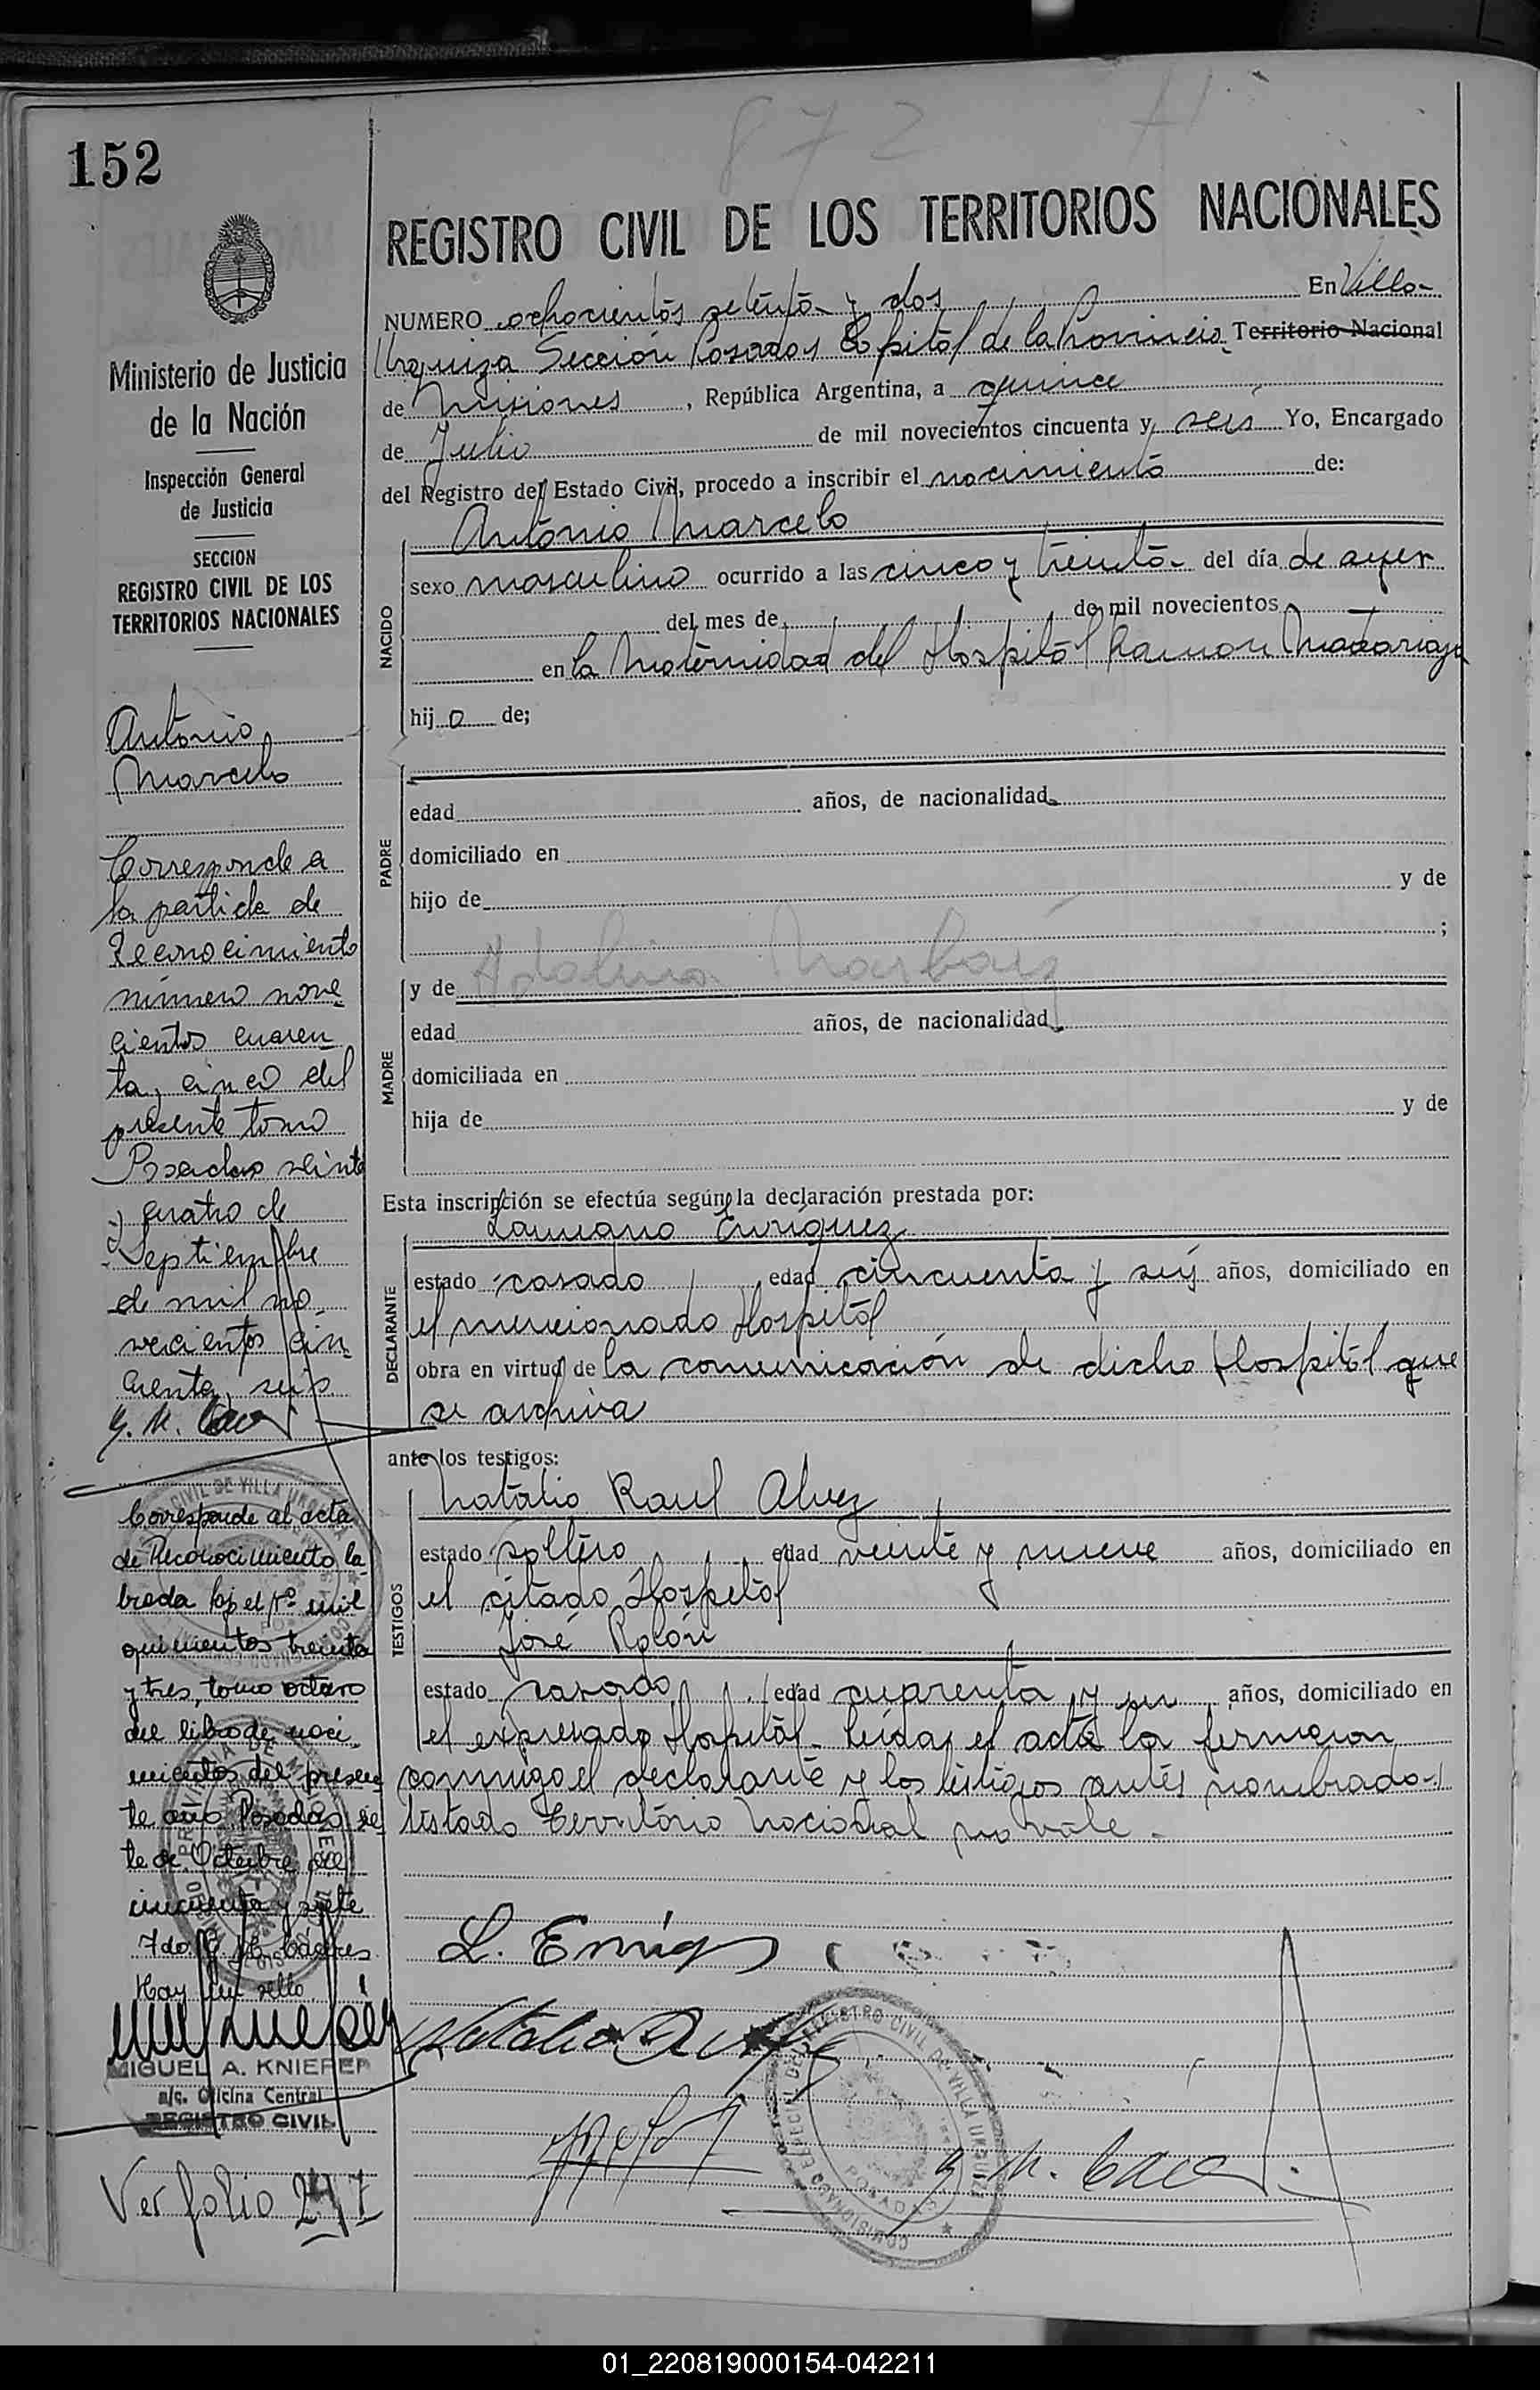 872
152
REGISTRO CIVIL DE LOS TERRITORIOS NACIONALES
NUMERO ochocientos setenta y dos En Villa
Urquiza Sección Posadas Capital de la Provincia Territorio Nacional
de Misiones, República Argentina, a quince
de Julio de mil novecientos cincuenta y seis Yo, Encargado
del Registro del Estado Civil, procedo a inscribir el nacimiento de:
Antonio Marcelo
NACIDO
sexo masculino ocurrido a las cinco y treinta del día de ayer
del mes de de mil novecientos
en la Maternidad del Hospital Ramon Madariaga
hijo de;
PADRE
edad años, de nacionalidad
domiciliado en
hijo de y de
;
MADRE
y de Adolina
edad años, de nacionalidad
domiciliada en
hija de y de
Esta inscripción se efectúa según la declaración prestada por:
Enriquez
DECLARANTE
estado casado edad cincuenta y seis años, domiciliado en
el mencionado Hospital
obra en virtud de la comunicación de dicho Hospital que
se archiva
ante los testigos:
TESTIGOS
Natalio Raul Alvez
estado soltero edad veinte y nueve años, domiciliado en
el citado Hospital
José Rolón
estado casado edad cuarenta y un años, domiciliado en
el expresado Hospital. Leída el acta la firmaron
conmigo el declarante y los testigos antes nombrados
testado Territorio Nacional no vale.
L. Enriq
Ministerio de Justicia
de la Nación
Inspección General
de Justicia
SECCION
REGISTRO CIVIL DE LOS
TERRITORIOS NACIONALES
Antonio
Marcelo
Corresponde a
la partida de
Reconocimiento
número nove
cientos cuaren
ta y cinco del
presente tomo
Posadas veinte
y cuatro de
Septiembre
de mil no
vecientos cin
cuenta y seis
Corresponde al acta
de Reconocimiento la
brada bajo el Nº mil
quinientos treinta
y tres, tomo octavo
del libro de naci
mientos del presen
te año. Posadas, sie
te de Octubre de
cincuenta y siete
Hay un sello
MIGUEL A. KNIEPER
a/c. Oficina Central
REGISTRO CIVIL
Ver folio 247
01_220819000154-042211